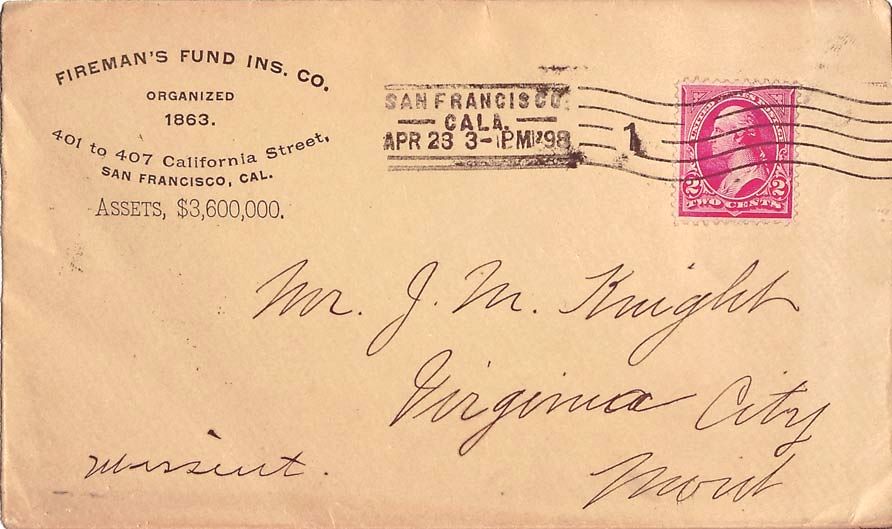 FIREMAN'S FUND INS. CO.
ORGANIZED
1863.
401 to 407 California Street,
SAN FRANCISCO, CAL.
ASSETS, $3,600,000.
SAN FRANCISCO.
CALA.
APR 23 3-PM '98
1
UNITED STATES POSTAGE
2 2
TWO CENTS
Mr. J. M. Knight
Virginia City
Mont
Missent.